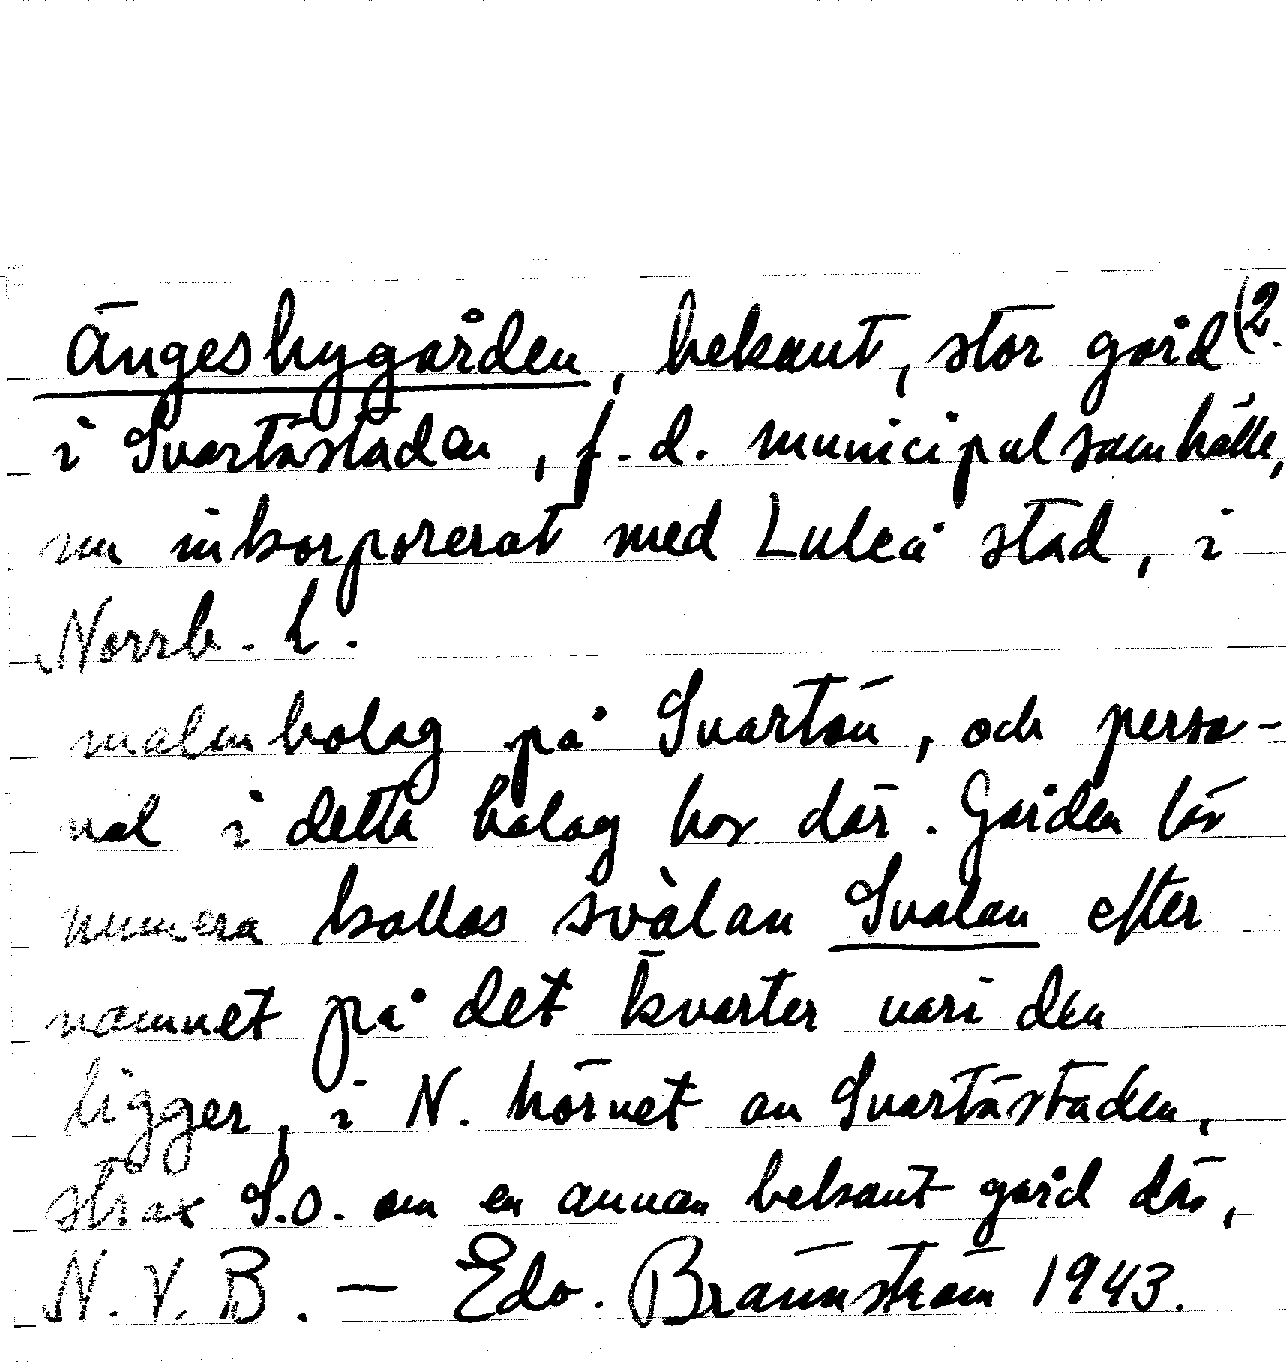 Ängesbygården, bekant, stor gård (2.
i Svartöstaden, f.d. municipalsamhälle,
nu inkorporerat med Luleå stad, i
Norrb. l.
malmbolag på Svartön, och perso-
nal i detta bolag bor där. Gården lär
numera kallas svàlan Svalan efter
namnet på det kvarter vari den
ligger, i N. hörnet av Svartöstaden,
strax S.O. om en annan bekant gård där,
N.V.B. — Edv. Brännström 1943.